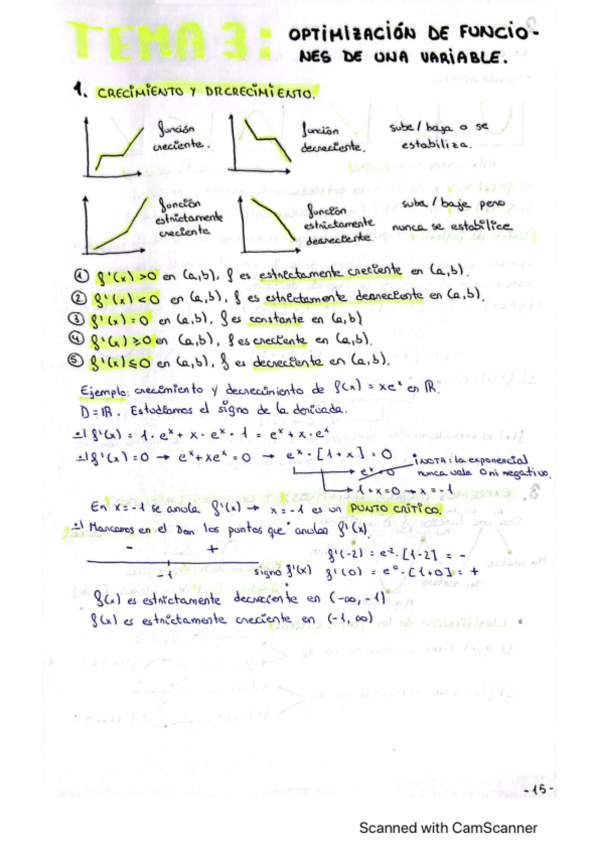 TEMA 3: OPTIMIZACIÓN DE FUNCIO-
NES DE UNA VARIABLE.
1. CRECIMIENTO Y DRCRECIMIENTO.
función creciente.
función decreciente.
sube/baja o se estabiliza.
función estrictamente creciente.
función estrictamente decreciente.
suba/baje pero nunca se estabilice
① f'(x) > 0 en (a,b), f es estrictamente creciente en (a,b).
② f'(x) < 0 en (a,b), f es estrictamente decreciente en (a,b).
③ f'(x) = 0 en (a,b), f es constante en (a,b)
④ f'(x) ≥ 0 en (a,b), f es creciente en (a,b).
⑤ f'(x) ≤ 0 en (a,b), f es decreciente en (a,b).
Ejemplo: crecimiento y decrecimiento de f(x) = xeˣ en ℝ.
D = ℝ. Estudiamos el signo de la derivada.
f'(x) = 1 · eˣ + x · eˣ · 1 = eˣ + x · eˣ
f'(x) = 0 → eˣ + xeˣ = 0 → eˣ · [1 + x] = 0
eˣ = 0
¡NOTA: la exponencial
nunca vale 0 ni negativo.
1 + x = 0 → x = -1
En x = -1 se anula f'(x) → x = -1 es un PUNTO CRÍTICO.
Marcamos en el Dom los puntos que anulan f'(x).
- +
-1 signo f'(x)
f'(-2) = e⁻² · [1-2] = -
f'(0) = e⁰ · [1+0] = +
f(x) es estrictamente decreciente en (-∞, -1)
f(x) es estrictamente creciente en (-1, ∞)
-15-
Scanned with CamScanner